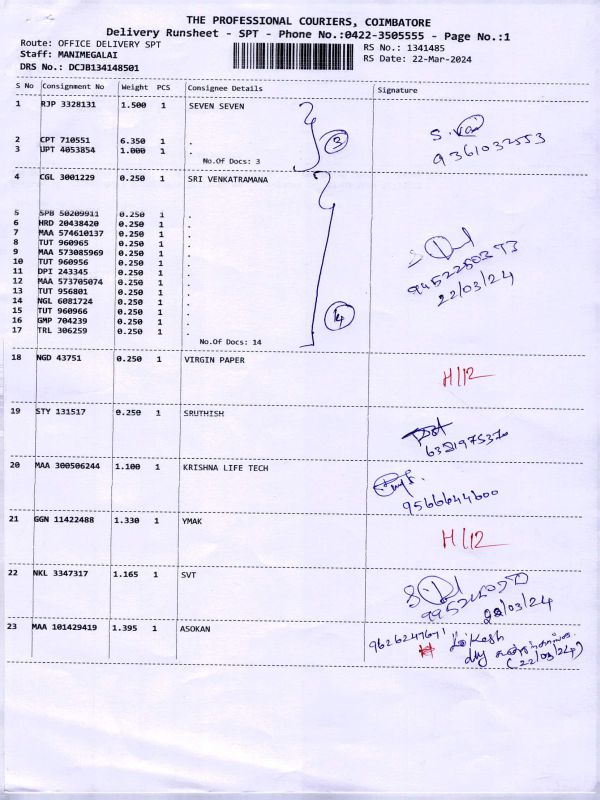 THE PROFESSIONAL COURIERS, COIMBATORE
Delivery Runsheet - SPT - Phone No.:0422-3505555 - Page No.:1
Route: OFFICE DELIVERY SPT
RS No.: 1341485
Staff: MANIMEGALAI
RS Date: 22-Mar-2024
DRS No.: DCJB134148501
S No Consignment No Weight PCS Consignee Details Signature
1 RJP 3328131 1.500 1 SEVEN SEVEN
2 CPT 710551 6.350 1 .
3 UPT 4053854 1.000 1 .
3
9361032553
No.Of Docs: 3
4 CGL 3001229 0.250 1 SRI VENKATRAMANA
5 SPB 50209911 0.250 1 .
6 HRD 20438420 0.250 1 .
7 MAA 574610137 0.250 1 .
8 TUT 960965 0.250 1 .
9 MAA 573085969 0.250 1 .
10 TUT 960956 0.250 1 .
11 DPI 243345 0.250 1 .
12 MAA 573705074 0.250 1 .
22/03/24
13 TUT 956801 0.250 1 .
14 NGL 6081724 0.250 1 .
15 TUT 960966 0.250 1 .
16 GMP 704239 0.250 1 .
14
17 TRL 306259 0.250 1 .
No.Of Docs: 14
18 NGD 43751 0.250 1 VIRGIN PAPER
H/12
19 STY 131517 0.250 1 SRUTHISH
20 MAA 300506244 1.100 1 KRISHNA LIFE TECH
9566644600
21 GGN 11422488 1.330 1 YMAK
H/12
22 NKL 3347317 1.165 1 SVT
22/03/24
23 MAA 101429419 1.395 1 ASOKAN
9626247671 Lokesh
(22/03/24)